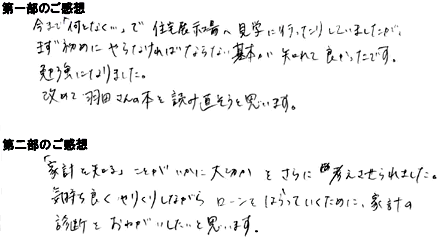 第一部のご感想
今まで「何となく…」で住宅展示場へ見学に行ったりしていましたが、
まず初めにやらなければならない基本が知れて良かったです。
勉強になりました。
改めて羽田さんの本を読み直そうと思います。
第二部のご感想
「家計を知る」ことがいかに大切かをさらに考えさせられました。
気持ち良くやりくりしながらローンをはらっていくために、家計の
診断をおねがいしたいと思います。